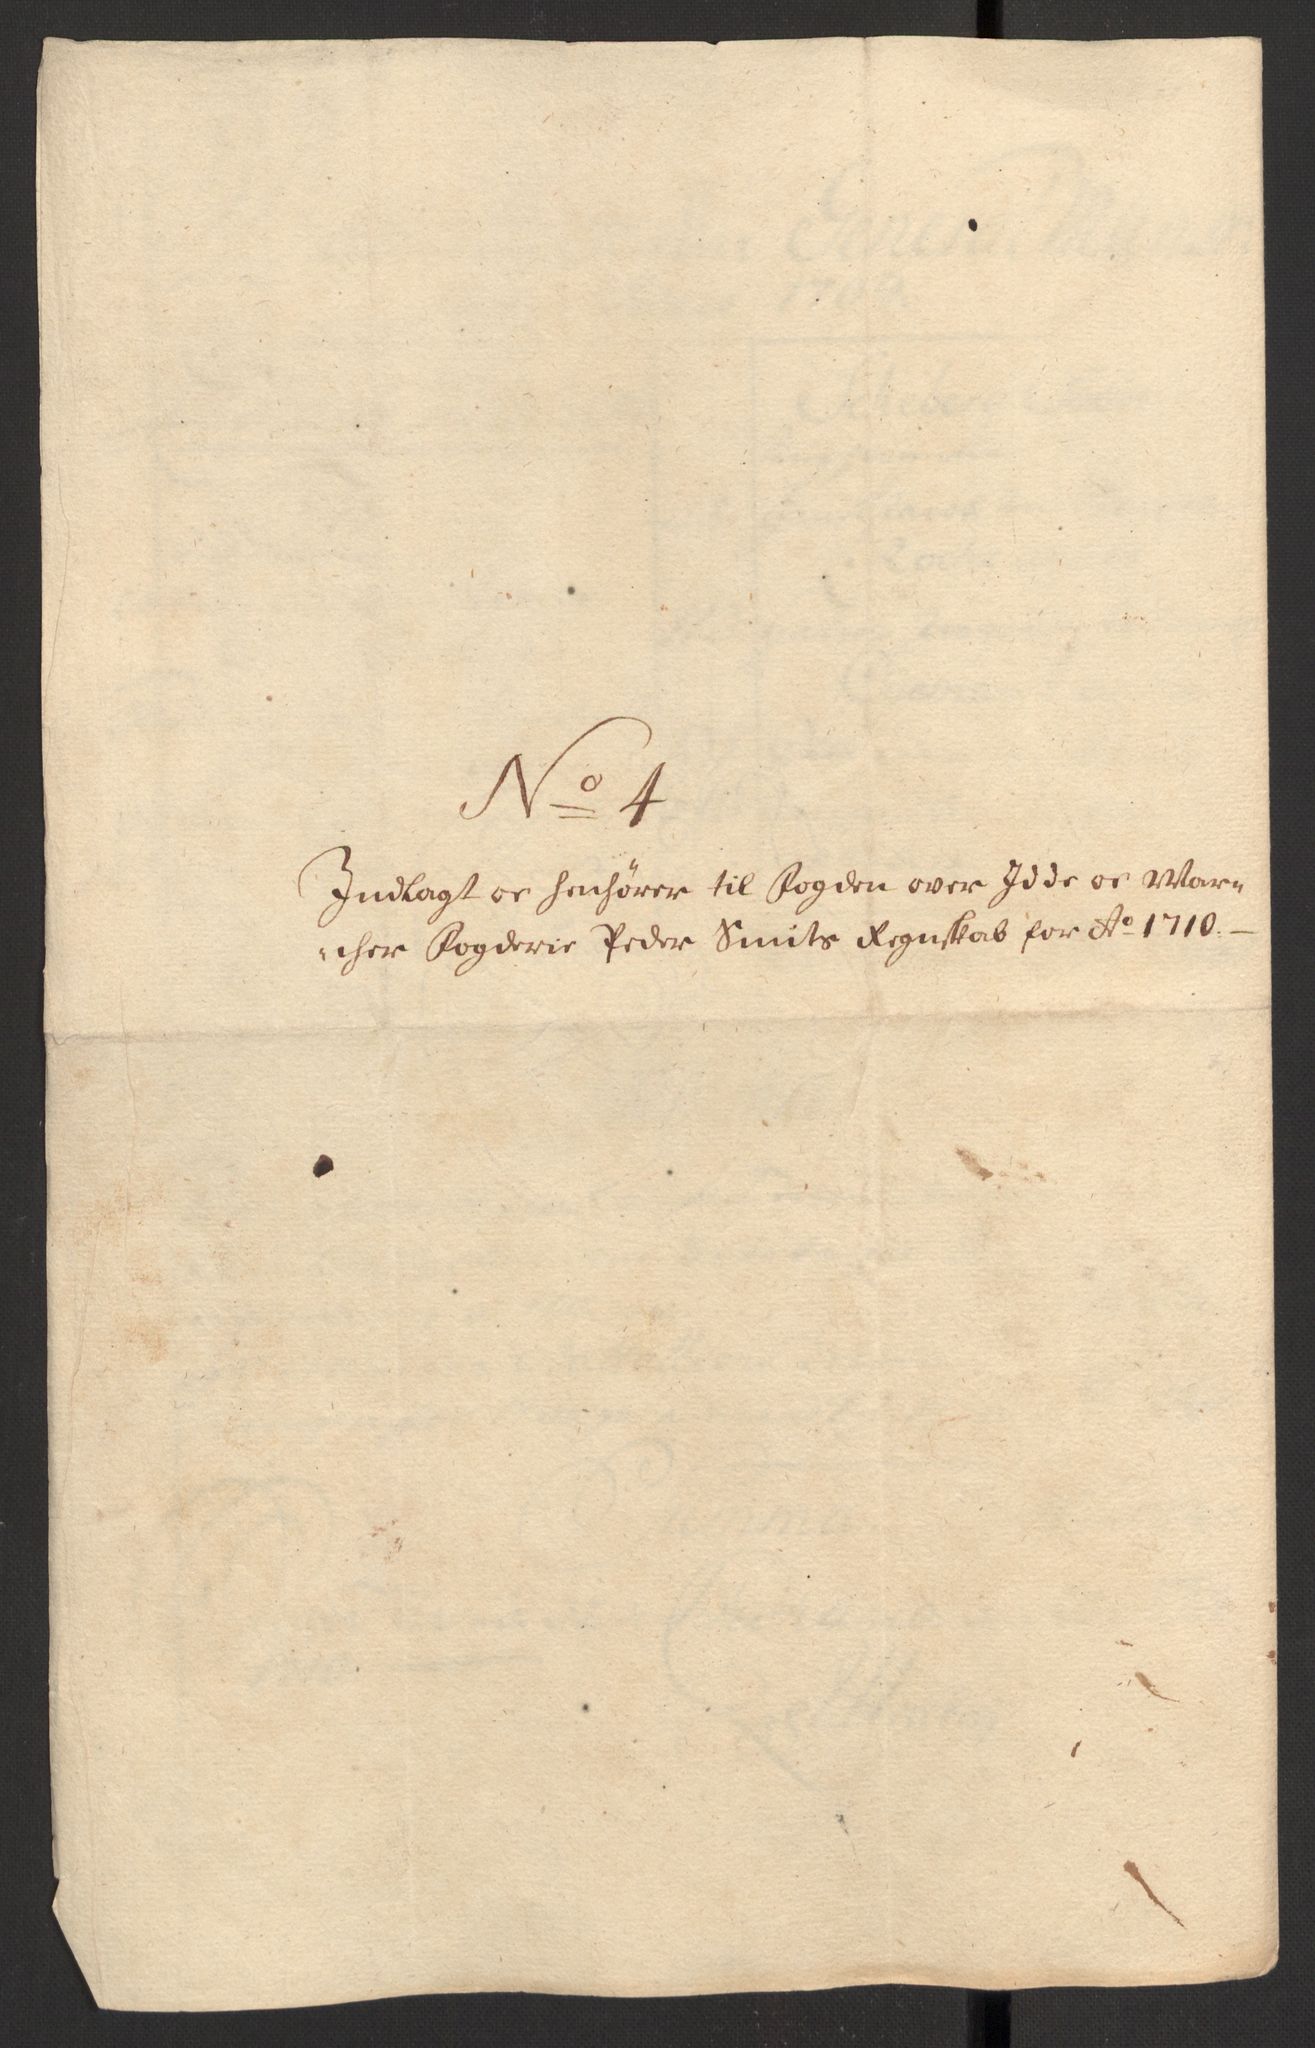 No 4
Indlagt oc henhörer til Fogden over Idde oc Mar=
=cher Fogderie Peder Smits Regnskab for Ao 1710. —